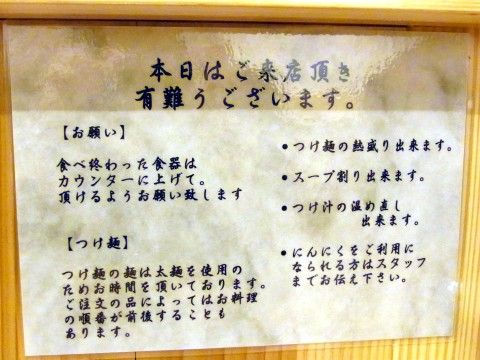 本日はご来店頂き
有難うございます。
【お願い】
食べ終わった食器は
カウンターに上げて。
頂けるようお願い致します
【つけ麺】
つけ麺の麺は太麺を使用の
ためお時間を頂いております。
ご注文の品によってはお料理
の順番が前後することも
あります。
●つけ麺の熱盛り出来ます。
●スープ割り出来ます。
●つけ汁の温め直し
出来ます。
●にんにくをご利用に
なられる方はスタッフ
までお伝え下さい。